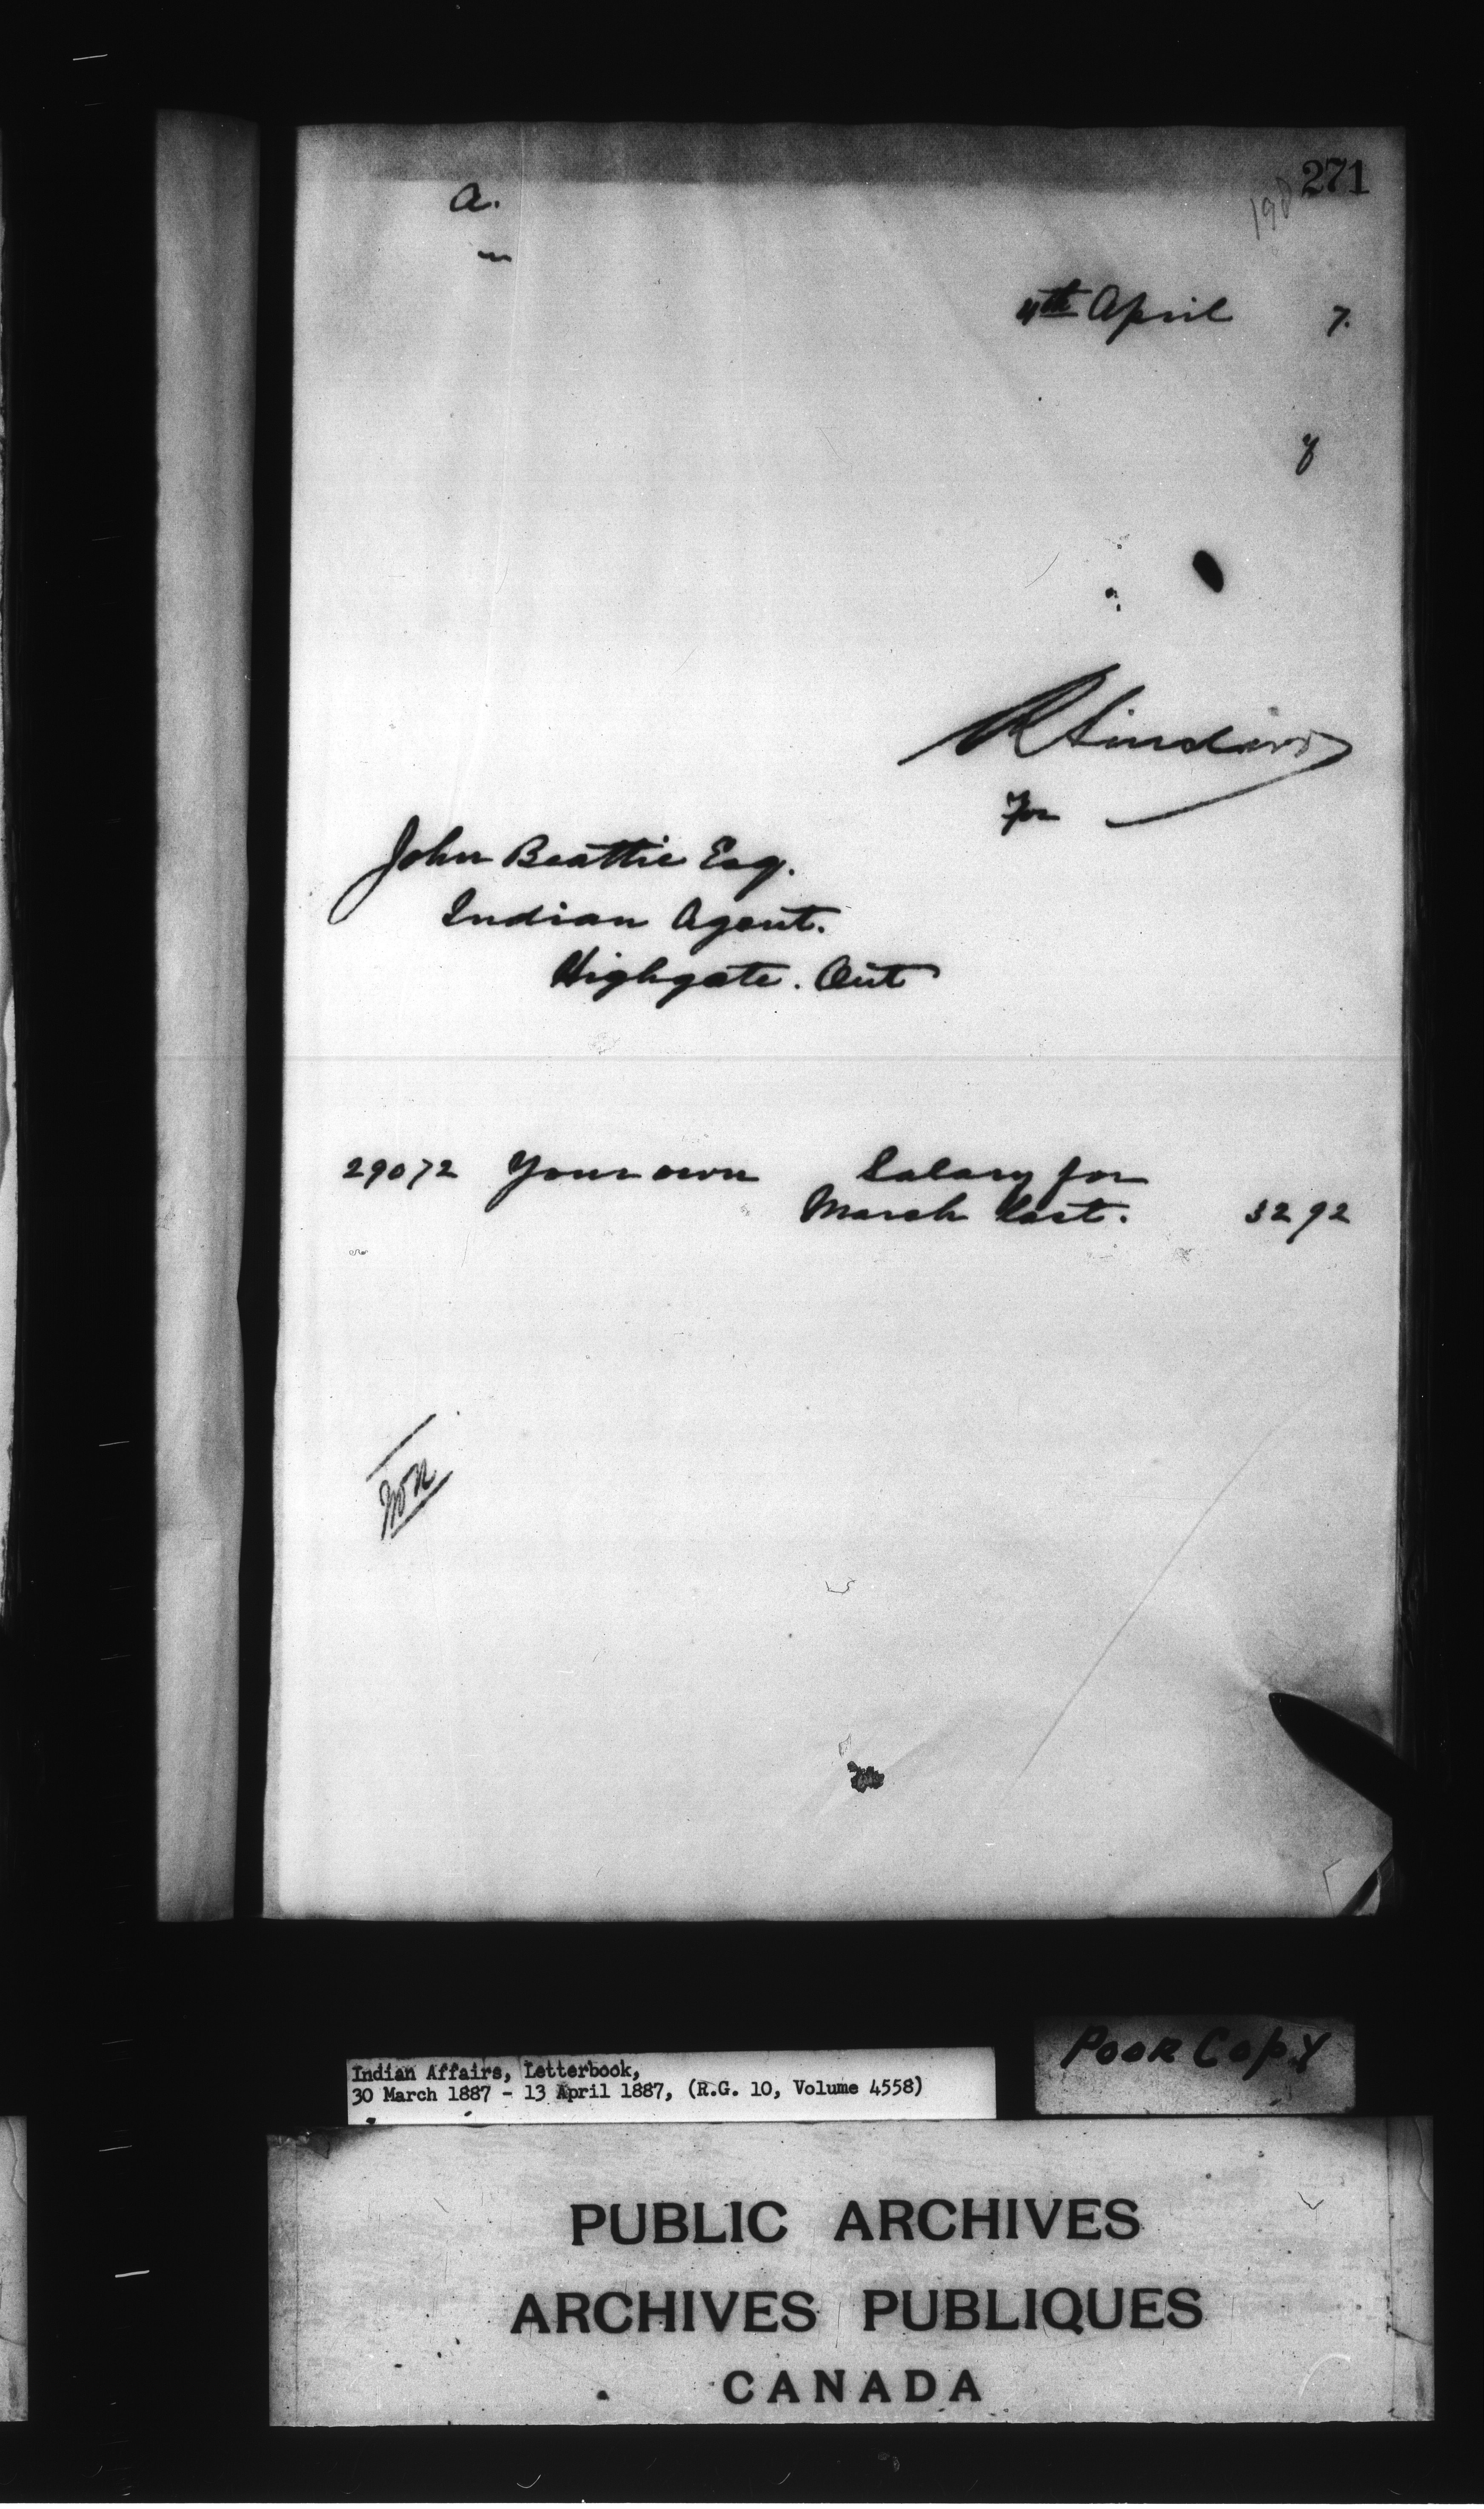 271
a.
4th April 7.
y
R Sinclair
For
John Beattie Esq.
Indian Agent.
Highgate. Ont
29072 Your own Salary for
March last. 32 92
Poor Copy
Indian Affairs, Letterbook,
30 March 1887 - 13 April 1887, (R.G. 10, Volume 4558)
PUBLIC ARCHIVES
ARCHIVES PUBLIQUES
CANADA